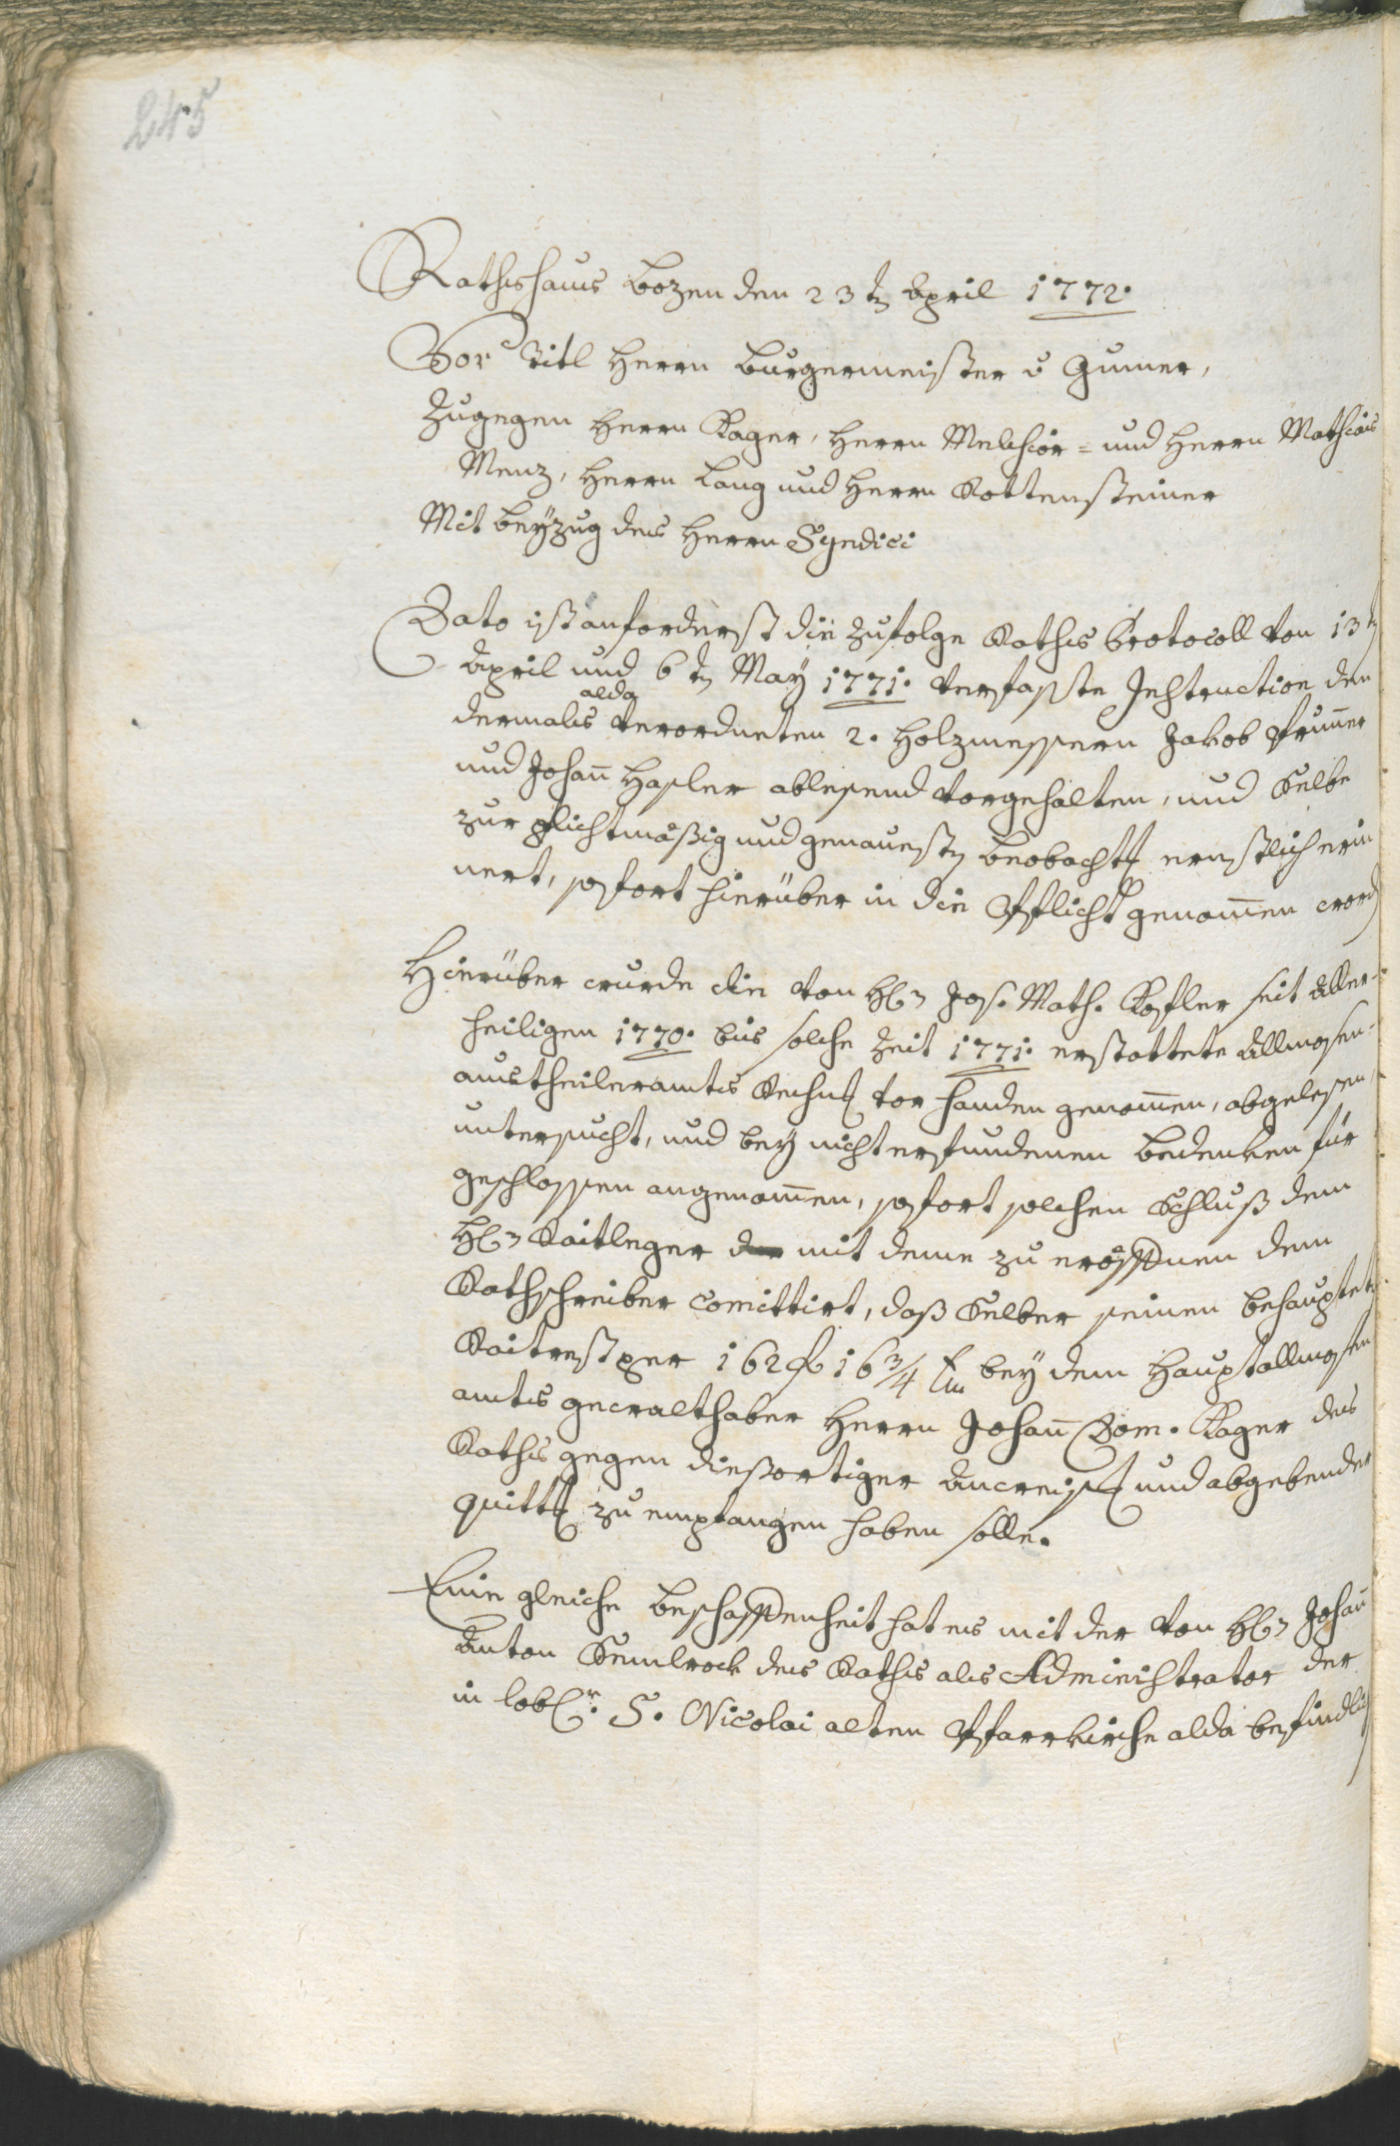 245
Rathshaus Bozen den 23ten April 1772.
Vor Titl Herrn Burgermeister v Gumer,
Zugegen Herrn Kager, Herrn Melchior= und Herrn Mathias
Menz, Herrn Lang und Herrn Rottensteiner
Mit beÿzug des Herrn Syndici
Dato ist anforderst die zufolge Raths Protocoll von 13t
April und 6ten Maÿ 1771. verfaßte Instruction den
alda
dermals verordneten 2. Holzmessern Jakob Prumer
und Johann Hasler ablesend vorgehalten, und Selbe
zur pflichtmäßig und genauesten beobachtung ernstlich erin
nert, sofort hierüber in die Pflicht genommen word
Hierüber wurde die von H. Jos. Math. Kofler seit Aller-
heiligen 1770. bis solche Zeit 1771. erstattete Allmosen-
austheileramts Rechnung vor handen genommen, abgelesen,
untersucht, und beÿ nicht erfundenen bedenken für
geschlossen angenommen, sofort solchen Schluß dem
H. Raitleger mit deme zu eröffnen dem
Rathschreiber comittirt, daß Selber seinen behauptet
Raitrest per 162 f 16 3/4 beÿ dem Hauptallmosen
amts gewalthaber Herrn Johann Dom. Kager des
Raths gegen dießortiger Anweisung und abgebender
Quittung zu empfangen haben solle.
Eine gleiche beschaffenheit hat es mit der von H. Johann
Anton Kemlrock des Raths als Administrator der
in lobl. S. Nicolai alten Pfarrkirche alda befindlich